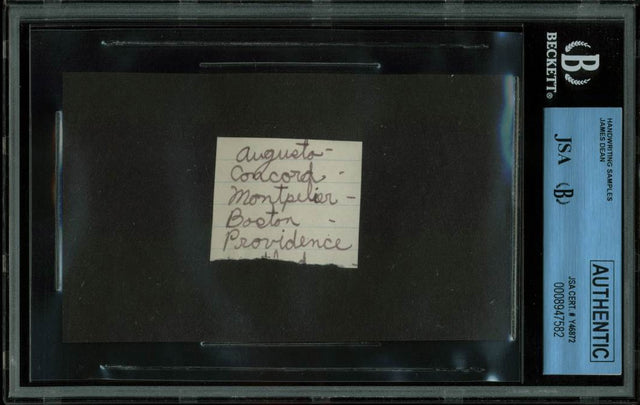 Augusta -
Concord -
Montpelier -
Boston -
Providence
BECKETT®
B
HANDWRITING SAMPLES
JAMES DEAN
JSA (B)
AUTHENTIC
JSA CERT. # Y46872
0008947582